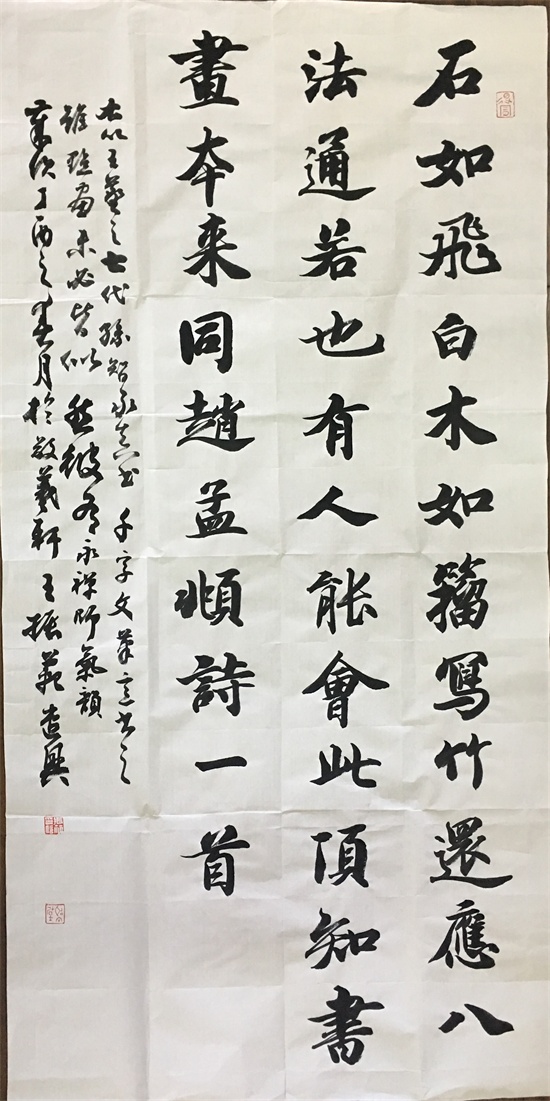 石如飛白木如籀寫竹還應八
法通若也有人能會此頂知書
畫本来同趙孟頫詩一首
右以王羲之七代孫智永真書千字文筆意書之
雖未必皆似然頗有永禪師氣韻
歲次丁酉之春月於敬羲軒王振遣興